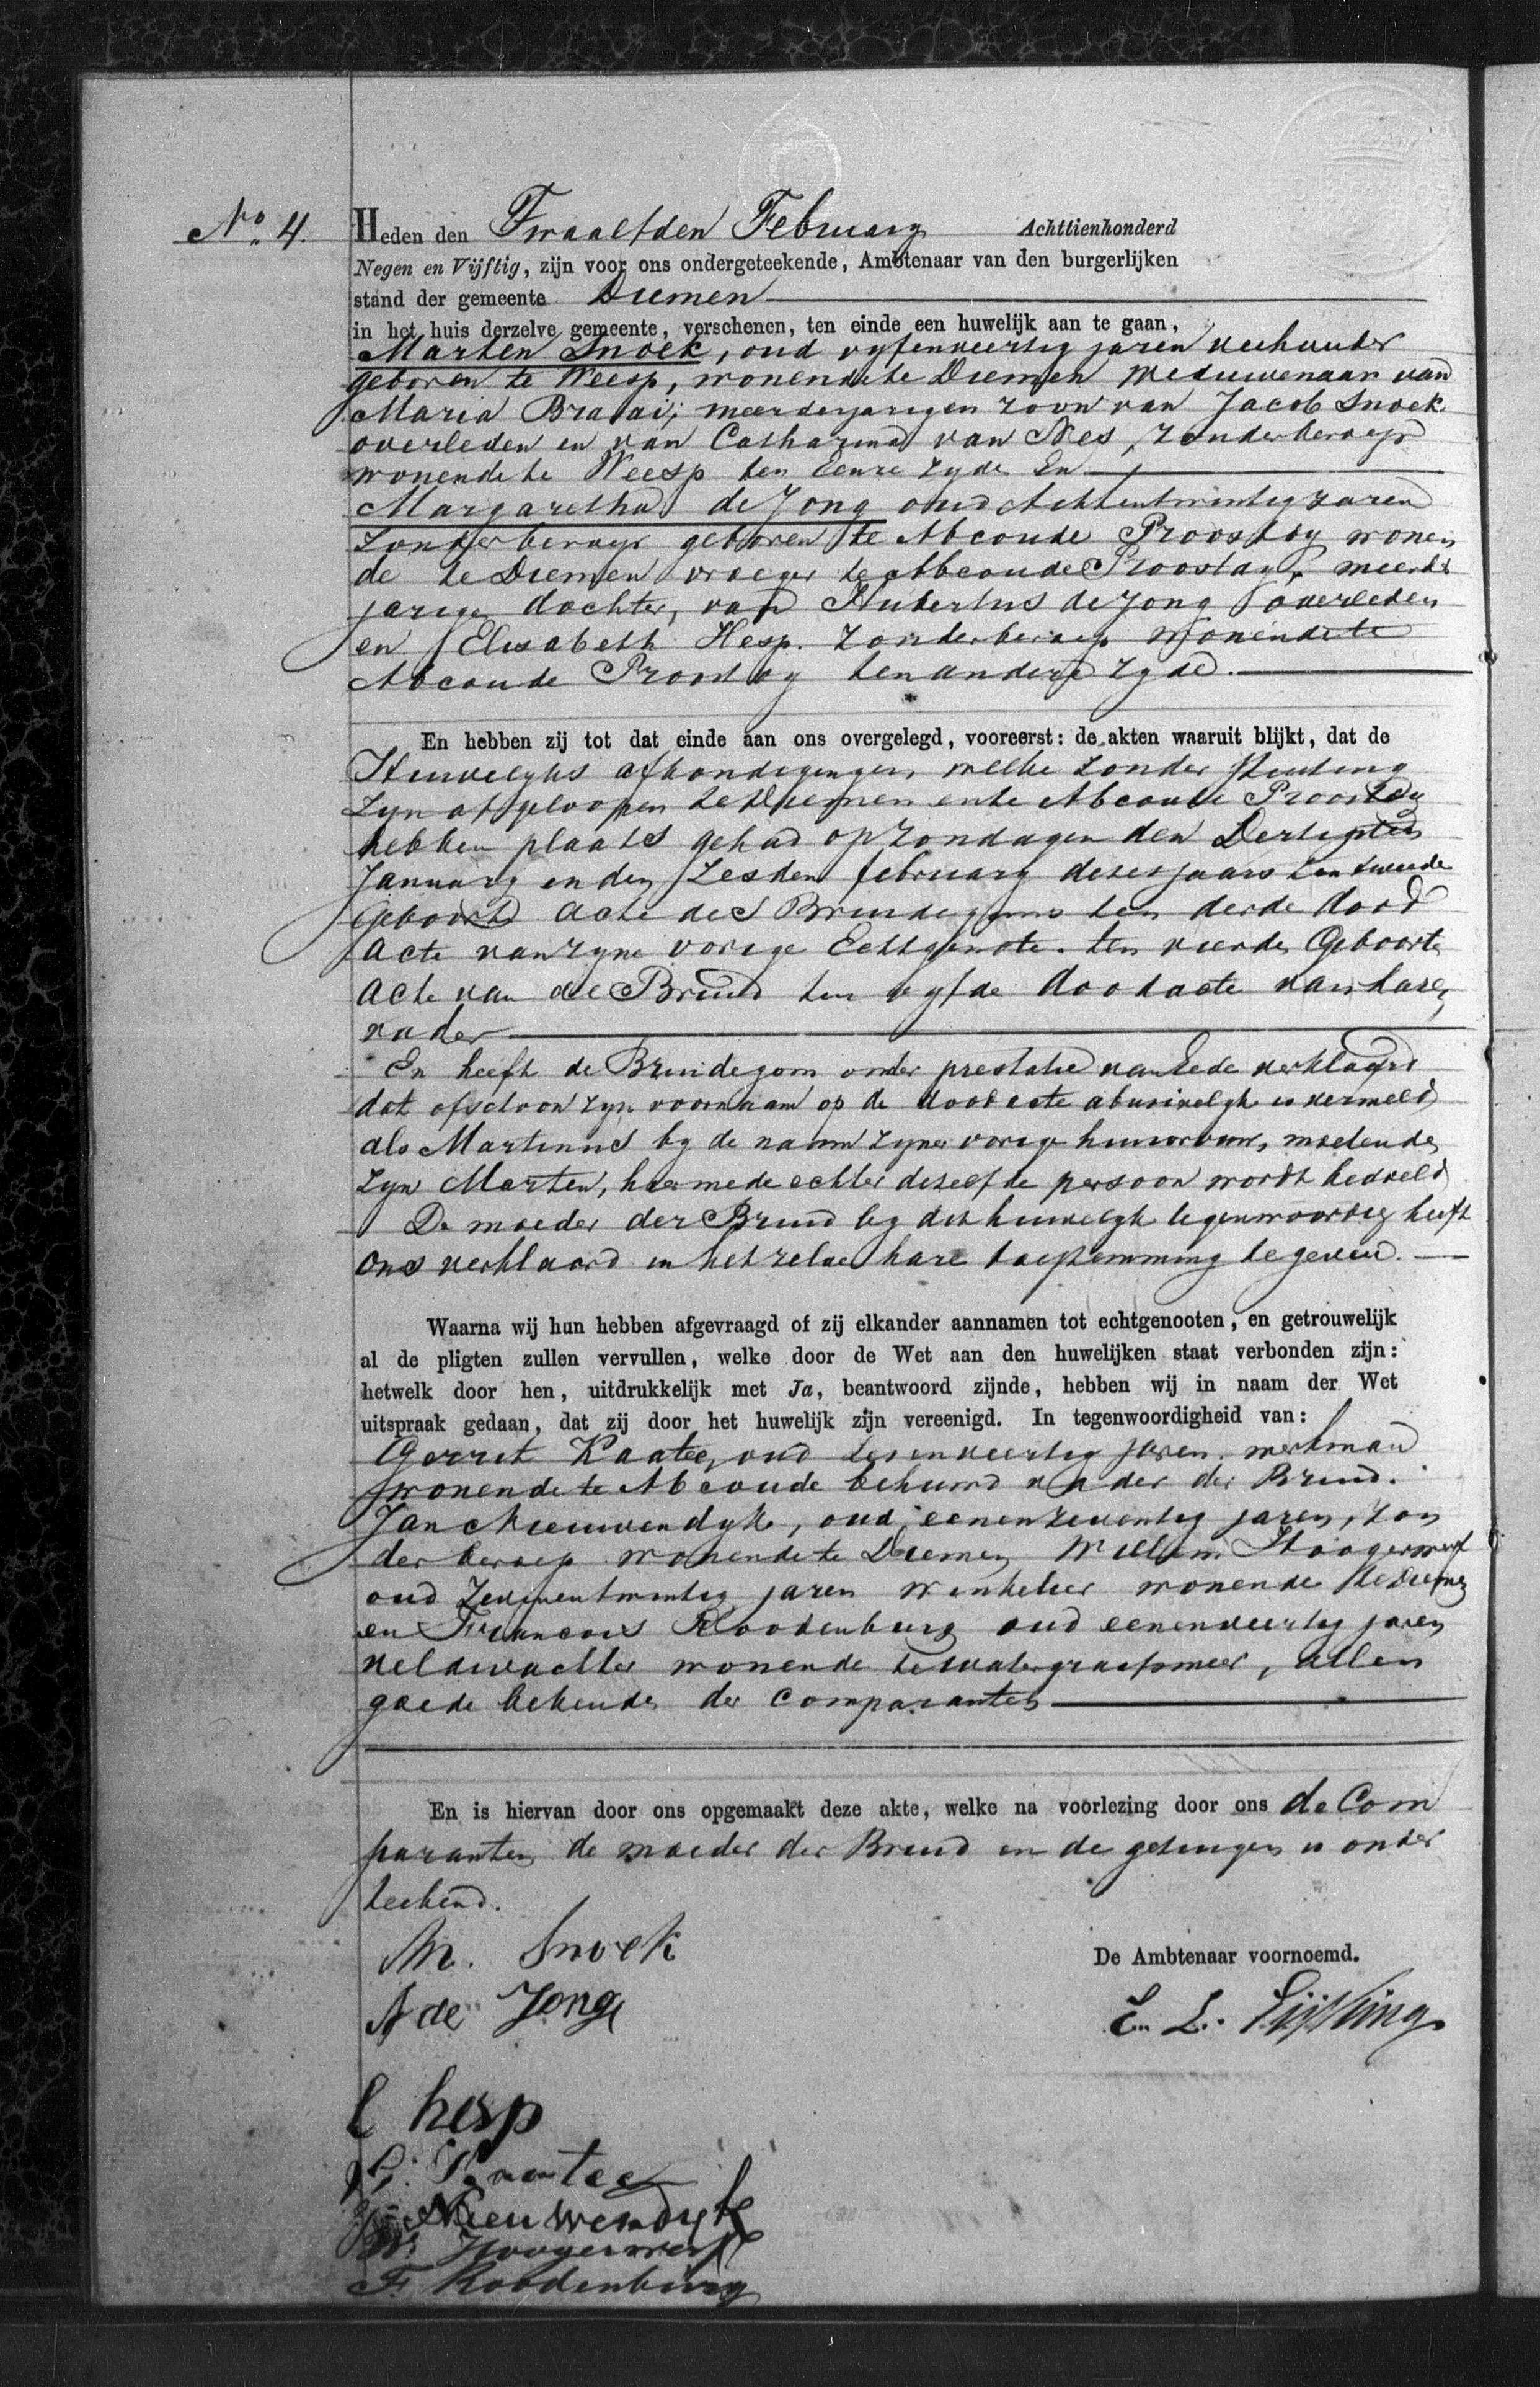 No. 4. Heden den Twaalfden February Achttienhonderd
Negen en Vijftig, zijn voor ons ondergeteekende, Ambtenaar van den burgerlijken
stand der gemeente Diemen
in het huis derzelve gemeente, verschenen, ten einde een huwelijk aan te gaan,
Marten Snoek, oud vyfenveertig jaren veehouder
geboren te Weesp, wonende te Diemen weduwenaar van
Maria Braaai, meerderjarigen zoon van Jacob Snoek
overleden en van Catharina van Nes, zonder beroep
wonende te Weesp ten Eenre zyde En
Margaretha de Jong oud Achtentwintig jaren
zonder beroep geboren te Abcoude Proosdy wonen
de te Diemen vroeger te Abcoude Proosday, meerder
jarige dochter, van Hubertus de Jong overleden
en Elisabeth Hesp. zonder beroep wonende te
Abcoude Proosdy ten andere zyde.
En hebben zij tot dat einde aan ons overgelegd, vooreerst: de akten waaruit blijkt, dat de
Huwelyks afkondigingen welke zonder stuiting
zyn afgeloopen te Diemen en te Abcoude Proosdy
hebben plaats gehad op zondagen den Dertigsten
January en den Zesden february dezes jaars ten tweede
Geboorte acte des Bruidegoms ten derde dood
acte van zyne vorige Echtgenote. ten vierde Geboorte
acte van de Bruid ten vyfde doodacte van haren
vader
En heeft de Bruidegom onder prestatie van Eede verklaard
dat ofschoon zyn voornaam op de dood acte abusivelyk is vermeld
als Martinus by de naam zyner vorige huisvrouw, moetende
zyn Marten, hiermede echter dezelfde persoon wordt bedoeld
De moeder der Bruid by dit huwelyk tegenwoordig heeft
ons verklaard in hetzelve hare toestemming te geven.
Waarna wij hun hebben afgevraagd of zij elkander aannamen tot echtgenooten, en getrouwelijk
al de pligten zullen vervullen, welke door de Wet aan den huwelijken staat verbonden zijn:
hetwelk door hen, uitdrukkelijk met Ja, beantwoord zijnde, hebben wij in naam der Wet
uitspraak gedaan, dat zij door het huwelijk zijn vereenigd. In tegenwoordigheid van:
Gerrit Kaatee, oud zesenveertig jaren, werkman
wonende te Abcoude behuwd vader der Bruid.
Jan Nieuwendyk, oud eenenzeventig jaren, zon
der beroep wonende te Diemen Willem Hoogerwerf
oud zevenentwintig jaren winkelier wonende te Diemen
en Francois Roodenburg oud eenenveertig jaren
veldwachter wonende te Watergraafsmeer, allen
goede bekenden der Comparanten
En is hiervan door ons opgemaakt deze akte, welke na voorlezing door ons de Com
paranten de moeder der Bruid en de getuigen is onder
teekend.
M. Snoek
De Ambtenaar voornoemd.
de Jong
E. L.
E hesp
G. Kaatee
J. Nieuwendyk
W. Hoogerwerf
F. Roodenburg